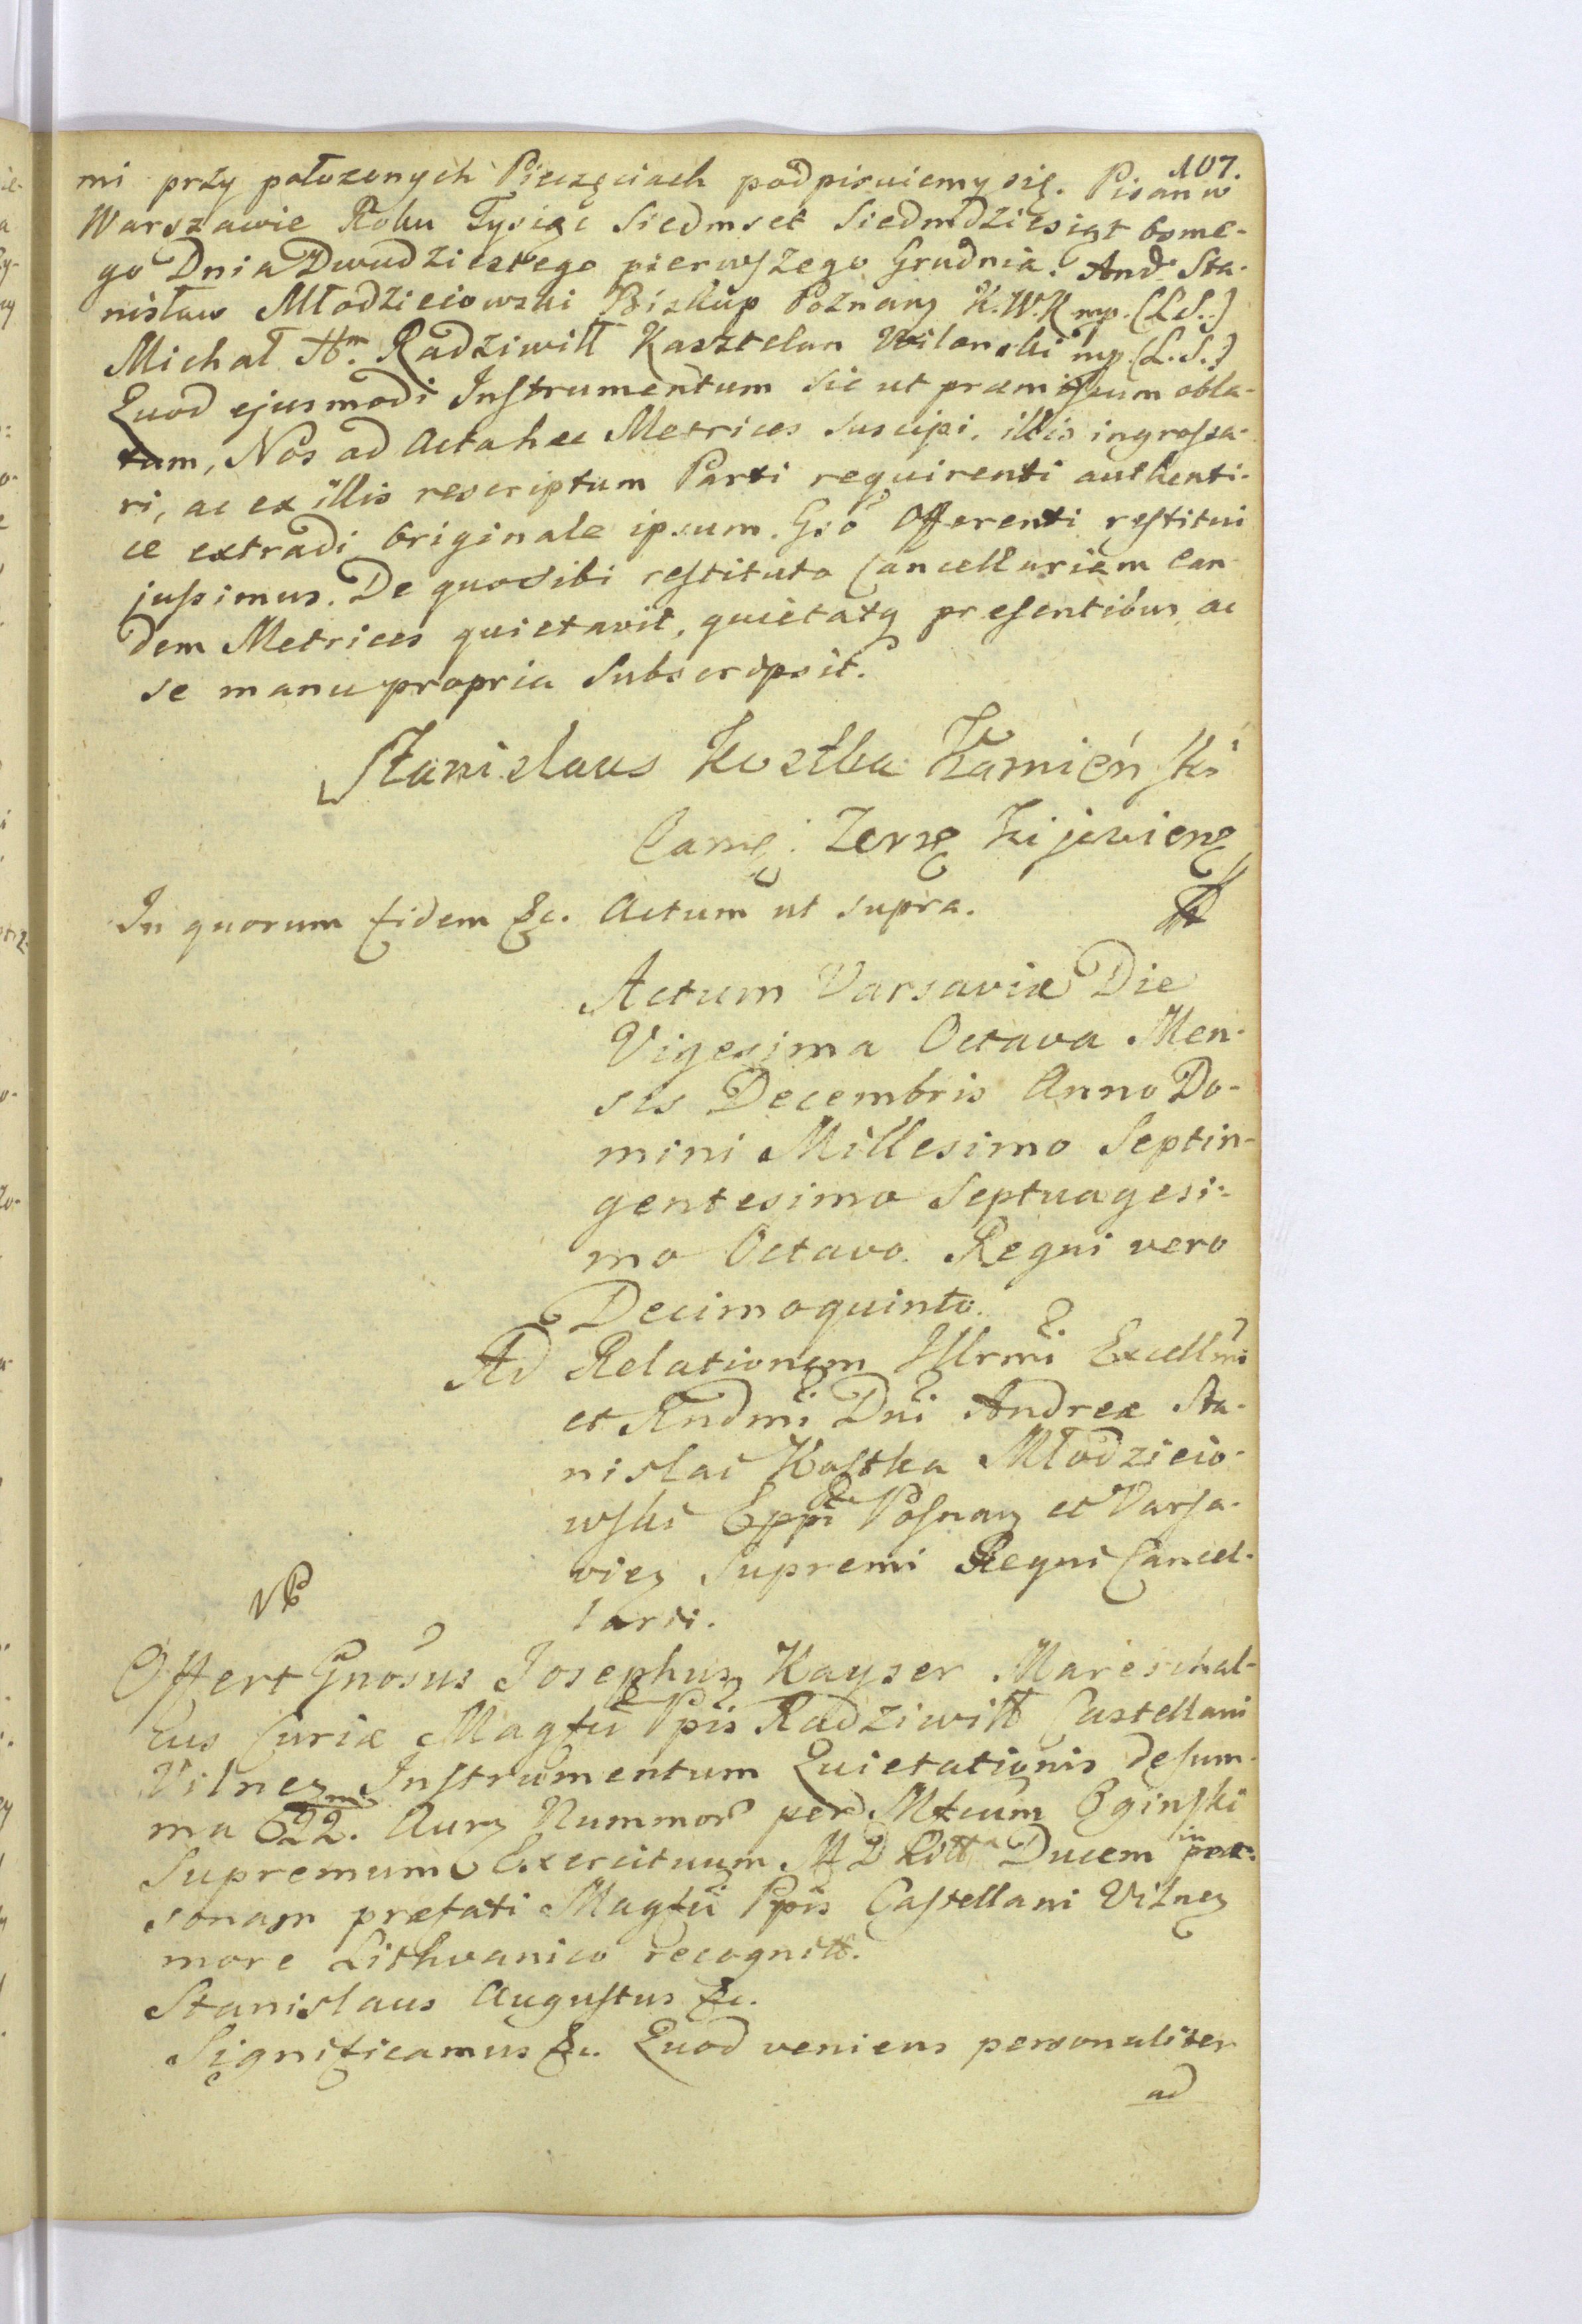 107.
mi przy położonych Pieczęciach podpisuiemy się. Pisan w
Warszawie Roku Tysiąc Siedmset Siedmdziesiąt osme-
go Dnia Dwudziestego pierwszego Grudnia. And: Sta-
nisław Młodzieiowski Biskup Poznanz K.W.K mp. (L.S.)
Michał Hr. Radziwiłł Kasztelan Wilenski mp. (L.S.)
Quod ejusmodi Instrumentum sic ut præmissum obla-
tum, Nos ad Acta hæc Metrices suscipi, illis ingrossa-
ri, ac ex illis rescriptum Parti requirenti authenti-
ce extradi originale ipsum Gso Offerenti restitui
jussimus. De quo sibi restituto Cancellariam ean-
dem Metrices quietavit, quietatq presentibus, ac
se manu propria subscripsit.
Stanislaus Kostka Kamieński
Camę: Terrę Kijovienę
In quorum fidem &c. Actum ut supra.
Actum Varsaviæ Die
Vigesima Octava Men-
sis Decembris Anno Do-
mini Millesimo Septin-
gentesimo Septuagesi-
mo Octavo. Regni vero
Decimoquinto.
Ad Relationem Illrmi Excellmi
et Rndmi Dni Andreæ Sta-
nislai Kostka Młodzieio-
wski Eppi Posnanz et Varsa-
vienz Supremi Regni Cancel-
larii.
NB
Offert Gnosus Josephus Kayser Mareschal-
lus Curiæ Magfci Ppis Radziwiłł Castellani
Vilnez Instrumentum Quietationis de sum-
ma 622. Aurz Nummor per Mfcum Oginski
Supremum Exercituum M D Litt Ducem in per-
sonam præfati Magfci Ppis Castellani Vilnez
more Lithvanico recognitt.
Stanislaus Augustus &c.
Significamus &c. Quod veniens personaliter
ad